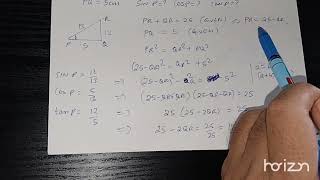 PQ = 5cm Sin P = ? Cos P = ? tan P = ?
PR + QR = 25 (Given) ∴ PR = 25-QR
R
13
12
P 5 Q
PQ = 5 (Given)
PR² = QR² + PQ²
(25-QR)² = QR² + 5²
Sin P = 12/13 ⇒ (25-QR)² - QR² = 5²
Cos P = 5/13 ⇒ (25-QR+QR)(25-QR-QR) = 25
tan P = 12/5 ⇒ 25 (25-2QR) = 25
⇒ 25 - 2QR = 25/25 = 1
horizon